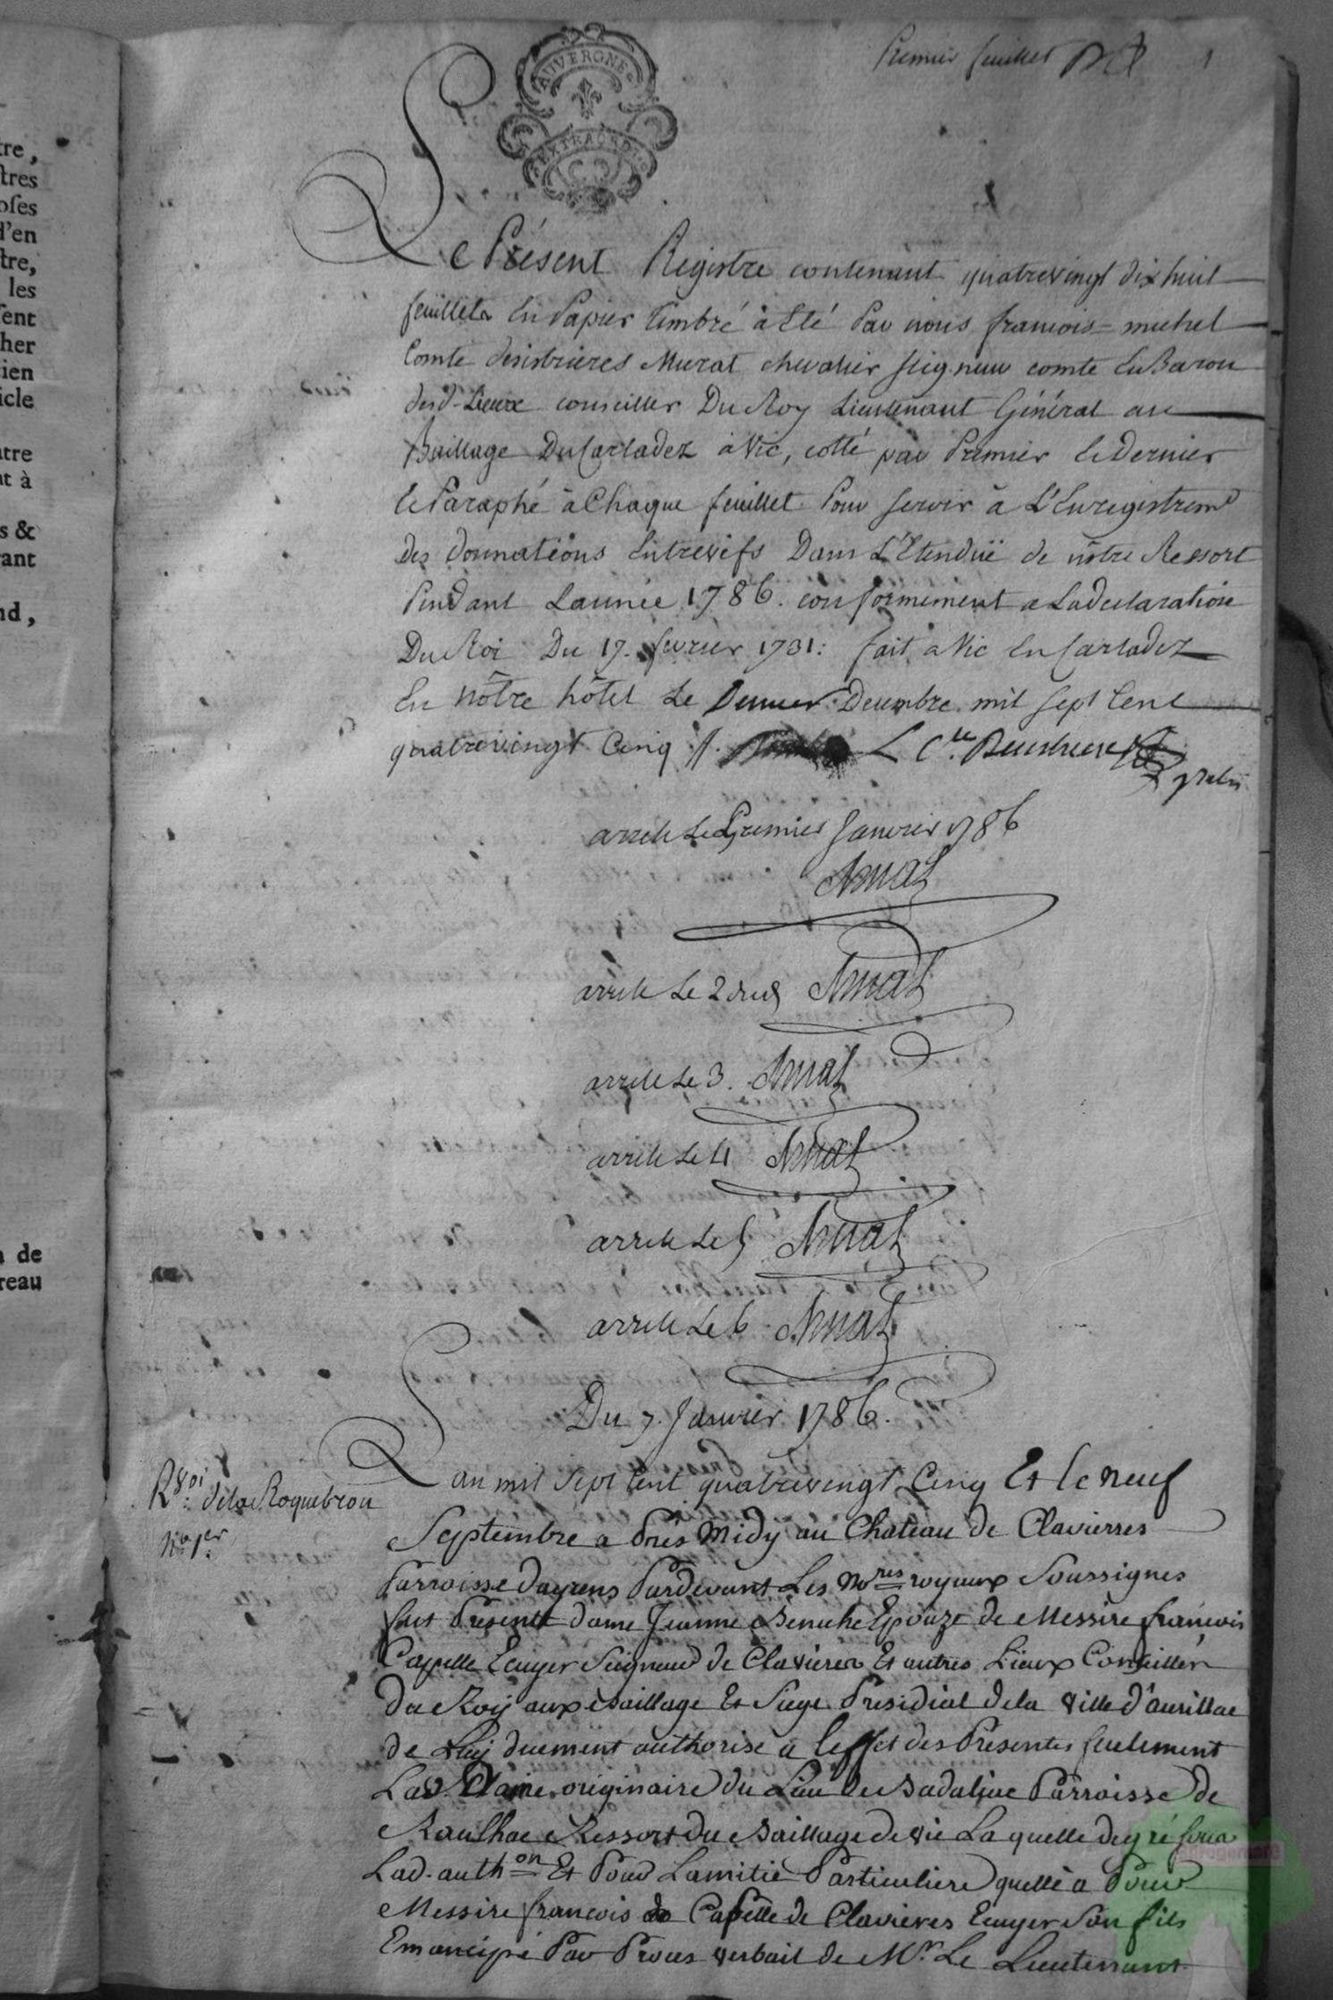 tre,
tres
oses
d'en
tre,
les
sent
her
ien
icle
tre
t à
s &
ant
nd,
de
reau
Premier feuillet
1
AUVERGNE
EXTRAORD
Le Présent Registre contenant quatrevingt dix huit
feuillets En Papier timbré à Eté Par nous francois = michel
Comte desistrieres Murat chevalier seigneur comte Et Baron
desd. Lieux conseiller Du Roy Lieutenant Général au
Baillage Du Carladez à Vic, cotté par Premier Et Dernier
Et Paraphé à Chaque feuillet Pour servir à L'Enregistremt
des donnations Entrevifs Dans L'Etenduë de nôtre Ressort
Pendant L'année 1786. conformement a La declaration
Du Roi Du 17. fevrier 1731: fait a Vic En Carladez
En nôtre hôtel Le Decembre mil sept Cent
quatrevingt Cinq //. L Cte
arrete Le Premier Janvier 1786
Amat
arrete Le 2 dud Amat
arrete Le 3. Amat
arrete Le 4 Amat
arrete Le 5 Amat
arrete Le 6 Amat
Du 7. Janvier 1786.
de la Roquebrou
No. 1er.
Lan mil sept Cent quatrevingt Cinq Et le neuf
Septembre a Près Midy au Chateau de Clavierres
Parroisse dayrens Pardevant Les Nores royaux Soussignes
fut Presente dame Jeanne Epouze de Messire francois
Capelle Ecuyer Seigneur de Clavieres Et autres Lieux Conseiller
du Roy aux Baillage Et Siege Presidial dela ville d'aurillac
de Luy duement authorisé a leffet des Presentes seulement
Lad. Dame originaire du Lieu de Badalhac Parroisse de
Raulhac Ressort du Baillage de vic La quelle de gré sous
Lad. authon Et Pour Lamitié Particuliere quelle à Pour
Messire francois de Capelle de Clavieres Ecuyer Son fils
Emancipé Par Proces verbail de Mr. Le Lieutenant